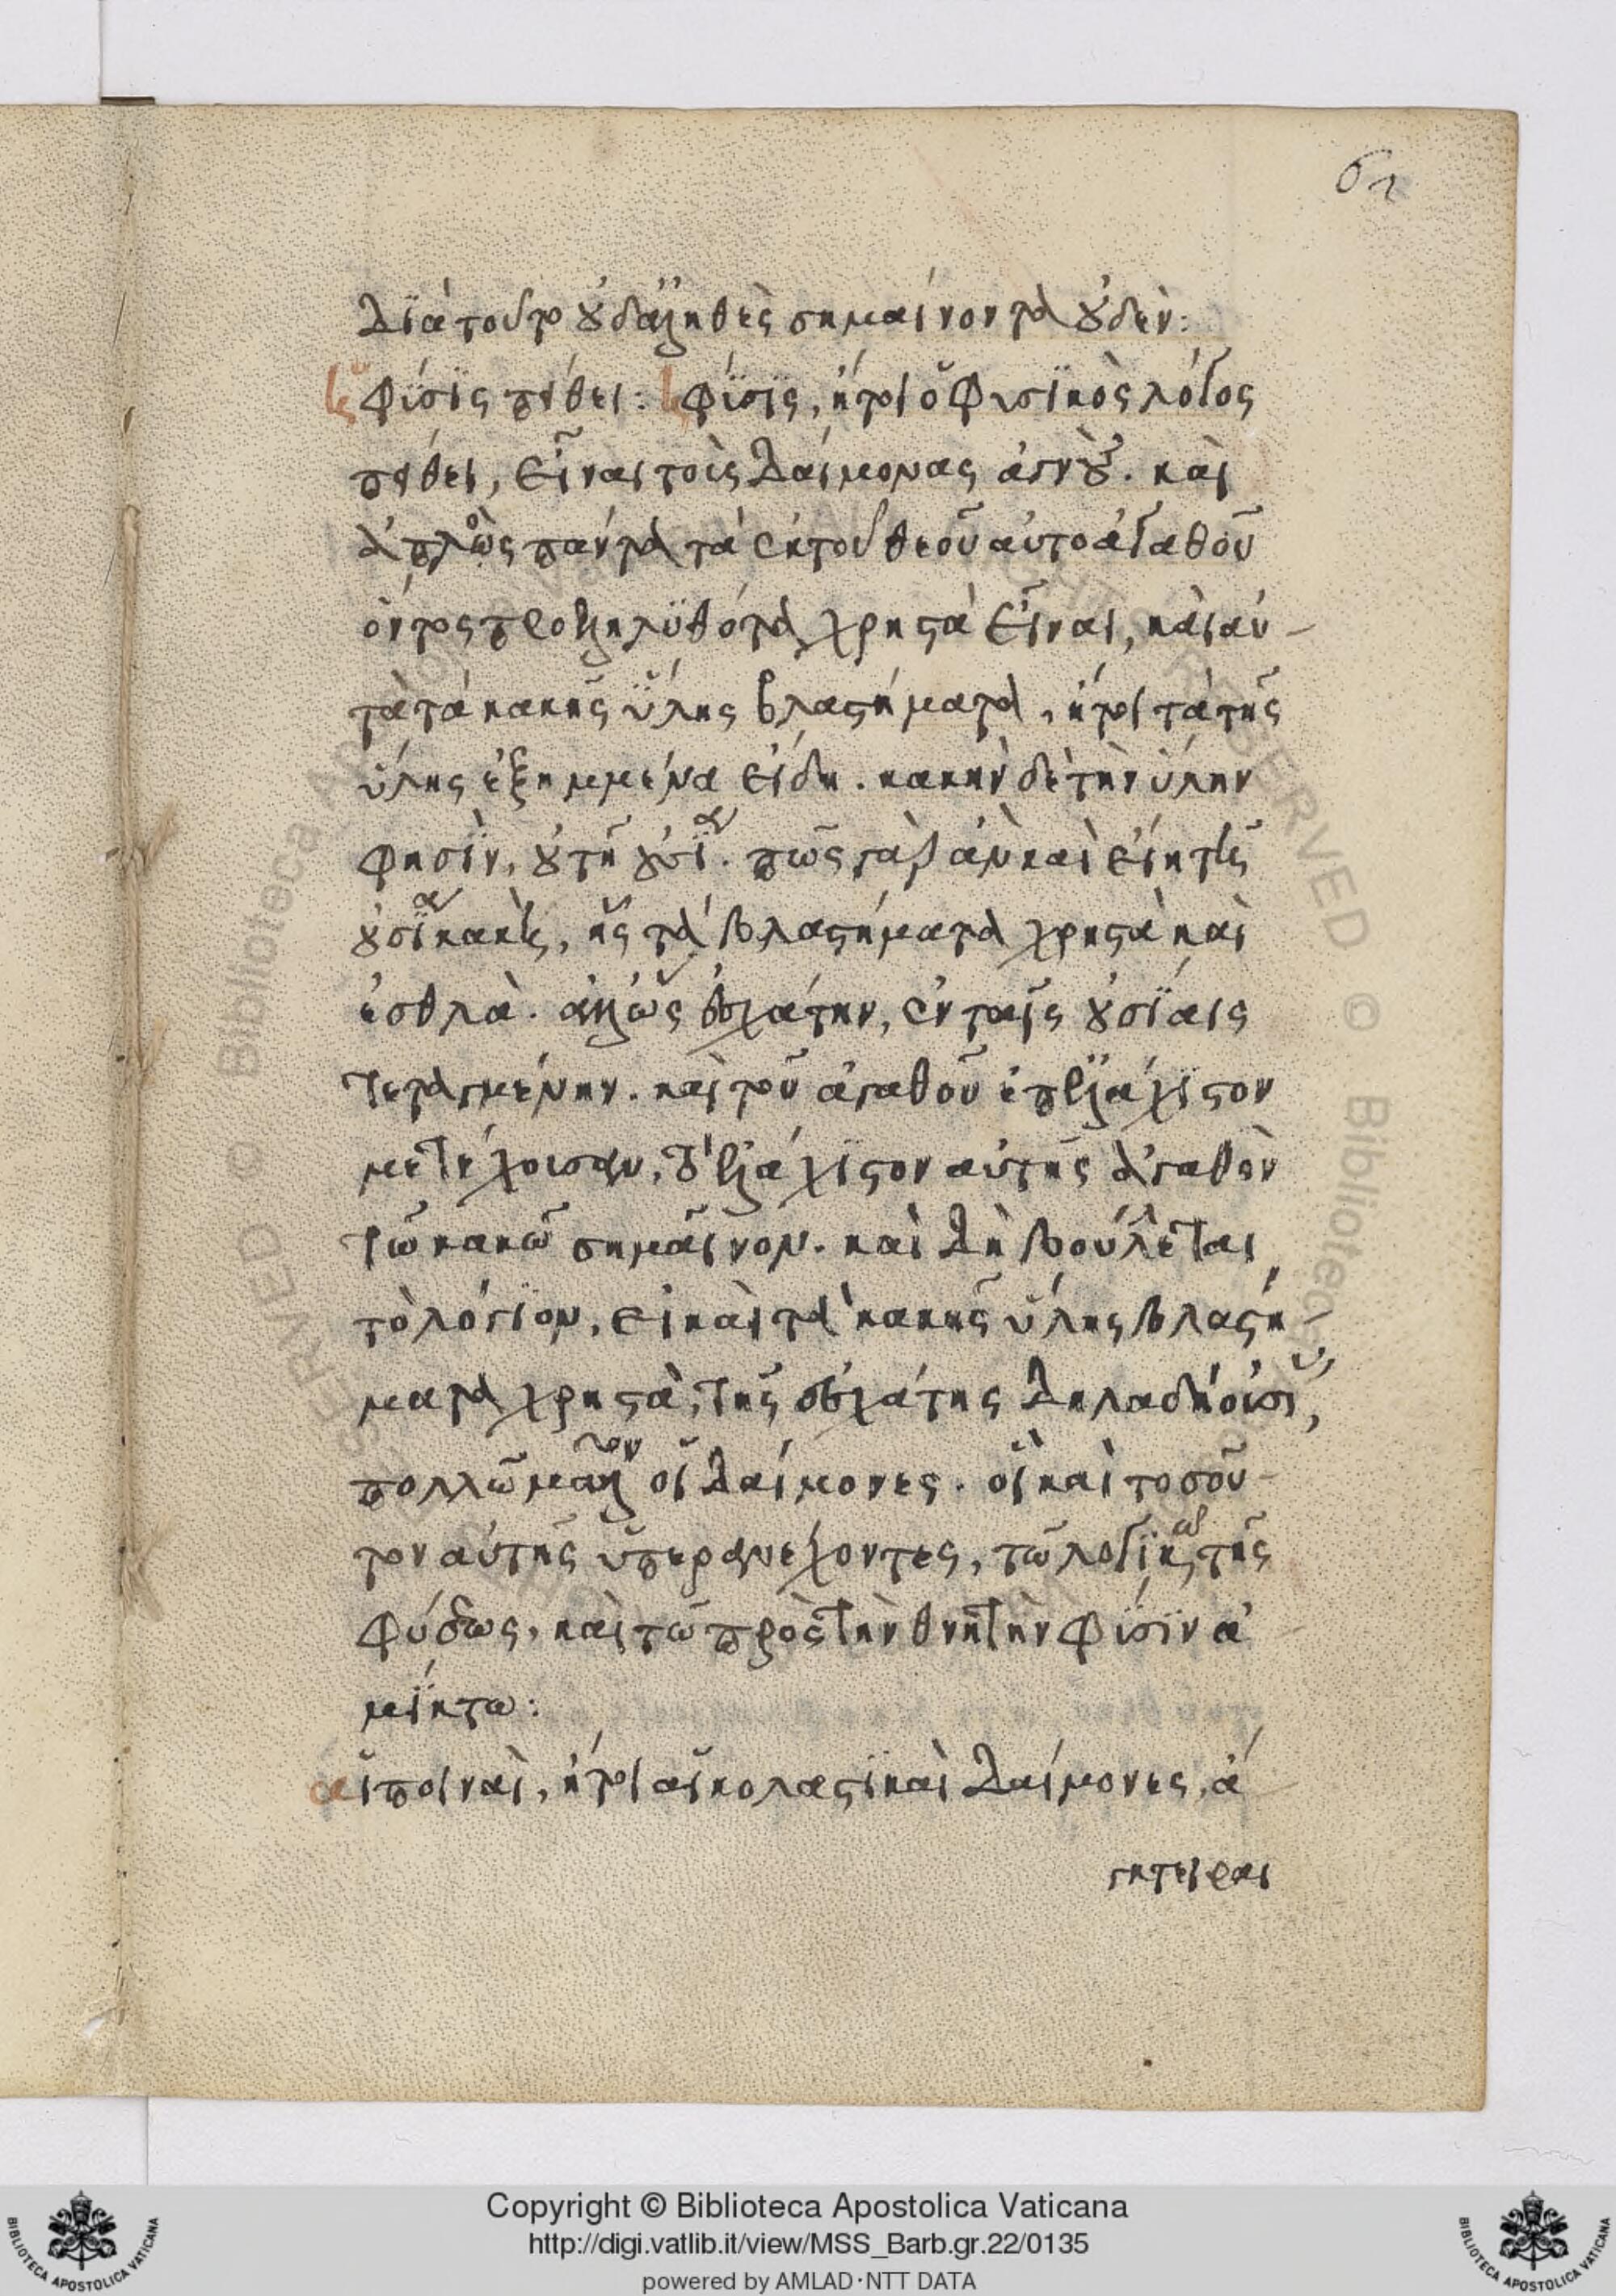 61
διὰ τοῦτο οὐδ' ἀληθὲς σημαίνοντα οὐδέν:
ἡ φύσις πείθει: ἡ φύσις, ἤτοι ὁ φυσικὸς λόγος
πείθει, εἶναι τοὺς δαίμονας ἁγνούς. καὶ
ἁπλῶς πάντα τὰ ἐκ τοῦ θεοῦ αὐτοαγαθοῦ
ὄντος προεληλυθότα χρηστὰ εἶναι, καὶ αὐ-
τὰ τὰ κακῆς ὕλης βλαστήματα, ἤτοι τὰ τῆς
ὕλης ἐξημμένα εἴδη. κακὴν δὲ τὴν ὕλην
φησὶν, οὐ τῇ οὐσίᾳ. πῶς γὰρ ἂν καὶ εἴη τῆς
οὐσίας κακῆς, ἧς τὰ βλαστήματα χρηστὰ καὶ
ἐσθλὰ. ἀλλ' ὡς ἐσχάτην, ἐν ταῖς οὐσίαις
τεταγμένην. καὶ τοῦ ἀγαθοῦ ἐπ' ἐλάχιστον
μετέχουσαν, τὸ ἐλάχιστον αὐτῆς ἀγαθὸν
τῷ κακῷ σημαῖνον. καὶ δὴ βούλεται
τὸ λόγιον, εἰ καὶ τὰ κακῆς ὕλης βλαστή-
ματα χρηστὰ, τῆς ἐσχάτης δηλαδὴ οὐσίας,
πολλῷ μᾶλλον οἱ δαίμονες. οἳ καὶ τοσοῦ-
τον αὐτῆς ὑπερανέχοντες, τῷ λογικῷ τῆς
φύσεως, καὶ τῷ πρὸς τὴν θνητὴν φύσιν ἀ
μίκτω:
αἱ ποιναὶ, ἤτοι αἱ κολαστικαὶ δαίμονες, ἄ
γκτειραι
Copyright © Biblioteca Apostolica Vaticana
http://digi.vatlib.it/view/MSS_Barb.gr.22/0135
powered by AMLAD·NTT DATA